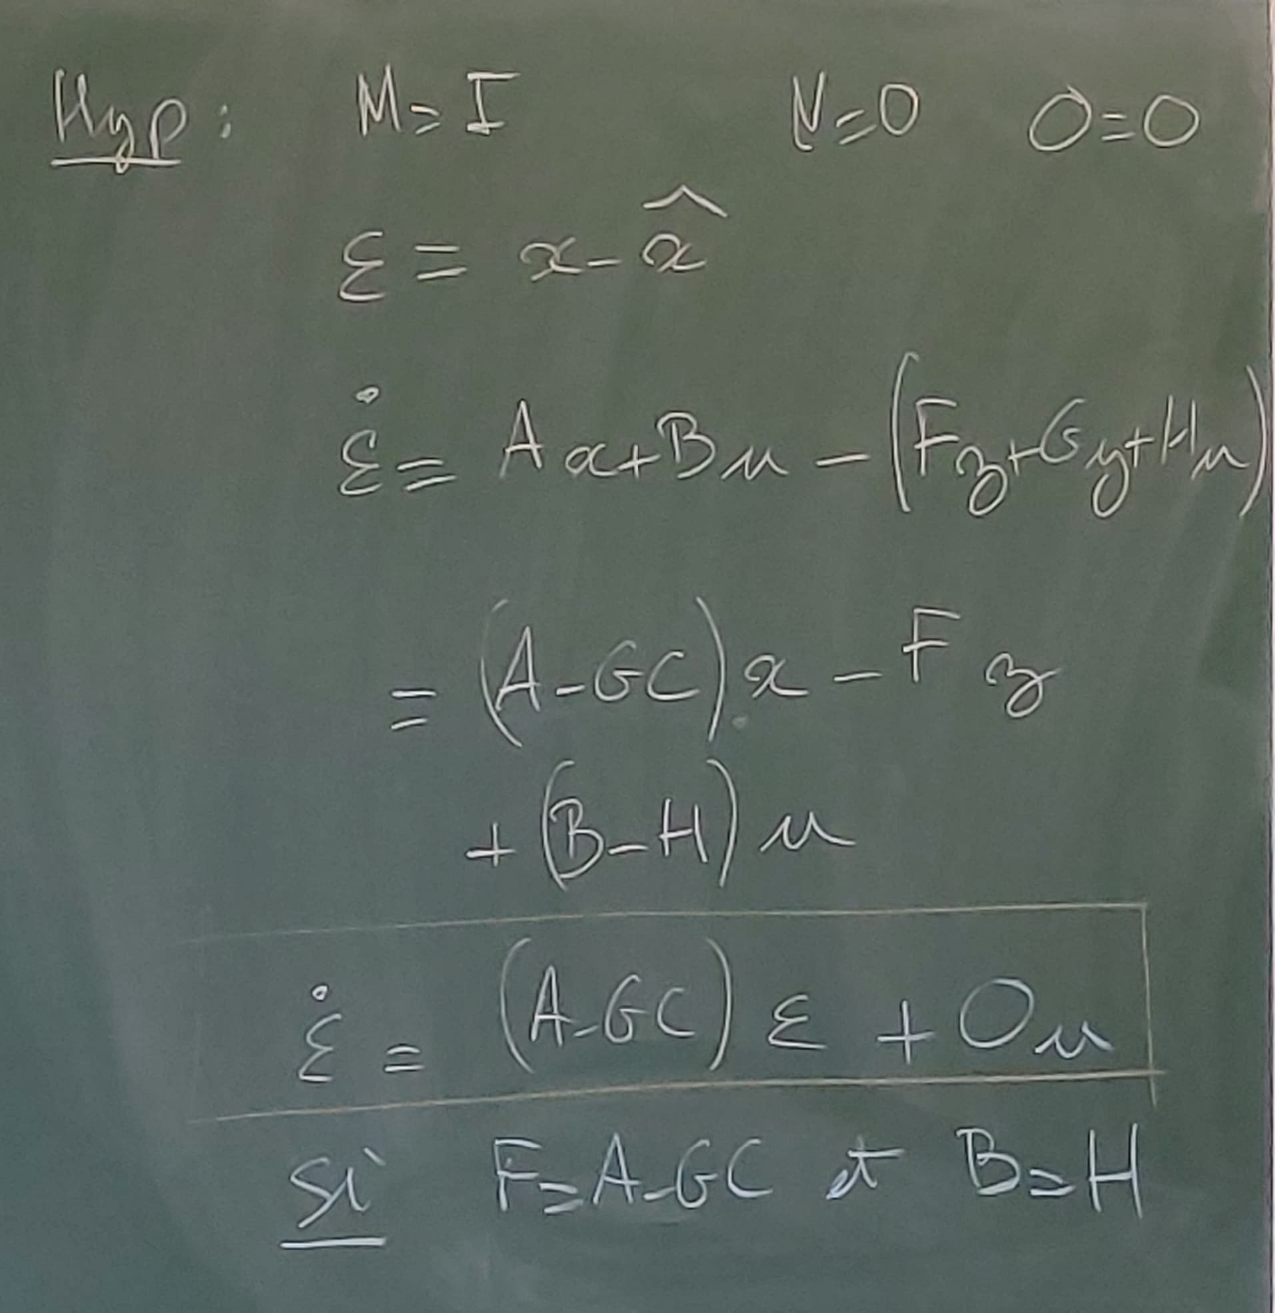 Hyp : M = I N = 0 O = 0
ε = x - x̂
ε̇ = Ax + Bu - (Fz + Gy + Hu)
= (A - GC) x - Fz
+ (B - H) u
ε̇ = (A - GC) ε + Ou
si F = A - GC et B = H